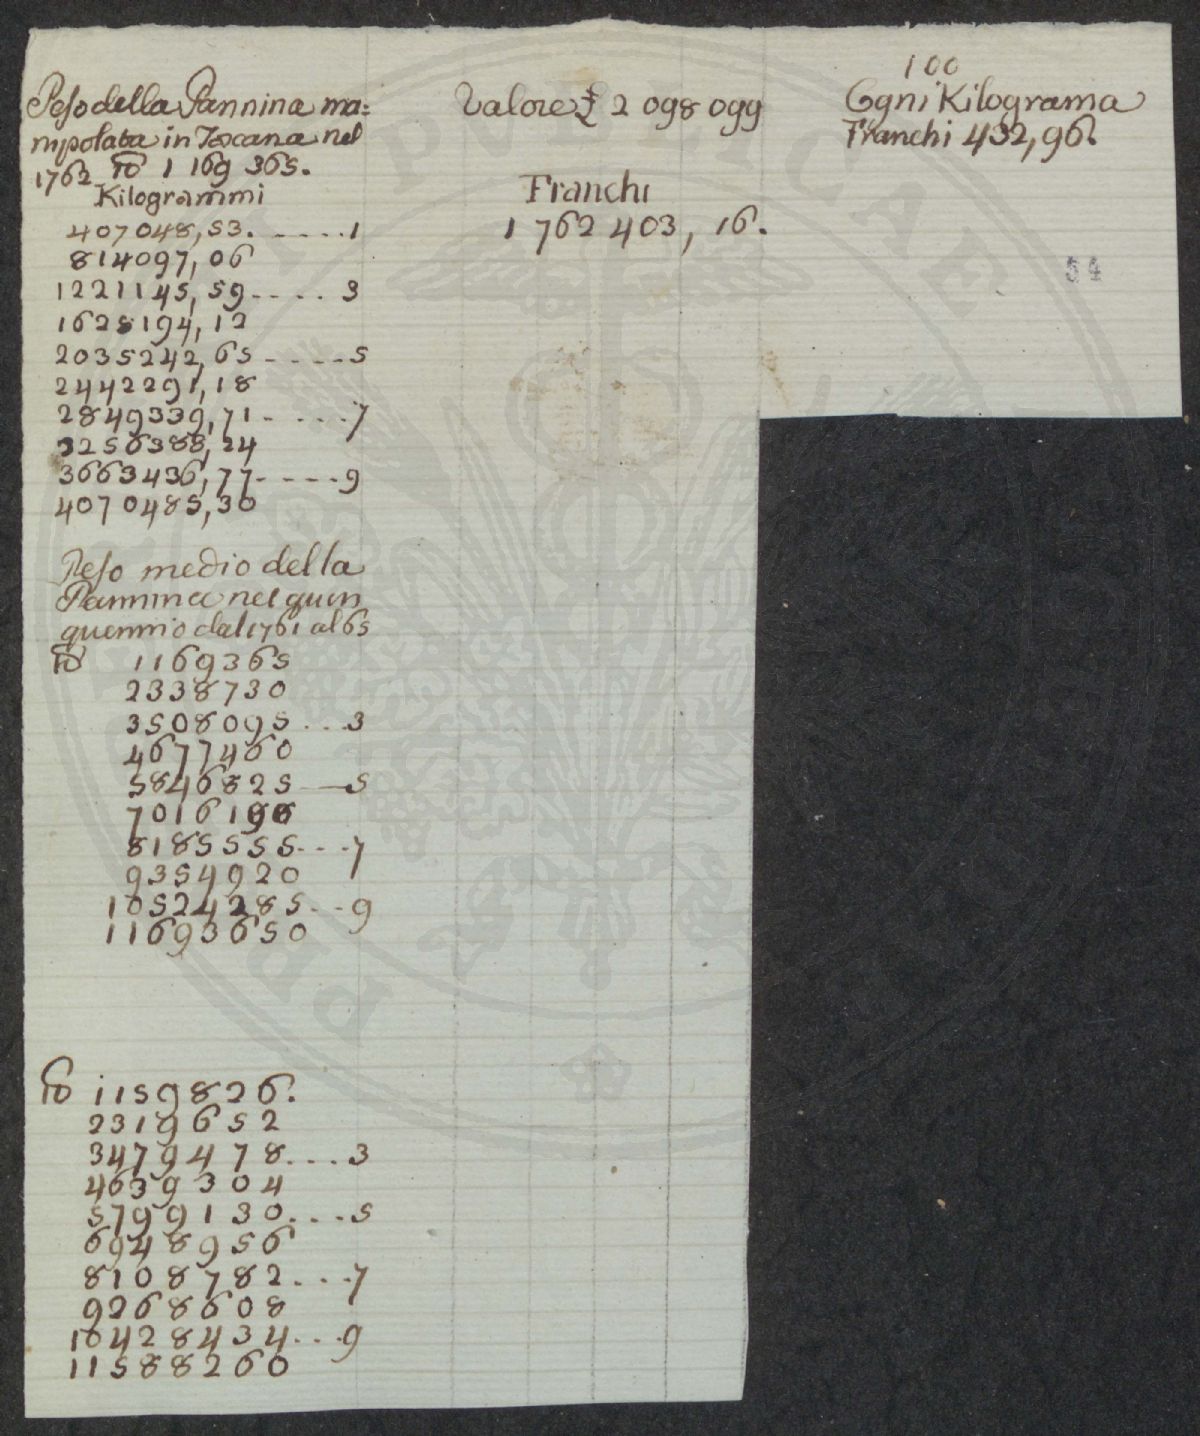 Peso della Pannina ma=
nipolata in Toscana nel
1762 ℔ 1 169 365.
Kilogrammi
407048,53. - - - - - 1
814097,06
1221145,59 - - - - 3
1628194,12
2035242,65 - - - - - 5
2442291,18
2849339,71 - - - - - 7
3256388,24
3663436,77 - - - - 9
4070485,30
Valore £ 2 098 099
Franchi
1 762 403, 16.
100
Ogni Kilograma
Franchi 432,96.
54
Peso medio della
Pannina nel quin
quennio dal 1761 al 65
℔ 1169365
2338730
3508095 . . . 3
4677460
5846825 — 5
7016190
8185555 - - - 7
9354920
10524285 - - 9
11693650
℔ 1159826.
2319652
3479478 . . . . 3
4639304
5799130 . . . . 5
6948956
8108782 . . . . 7
9268608
10428434 . . . 9
11588260